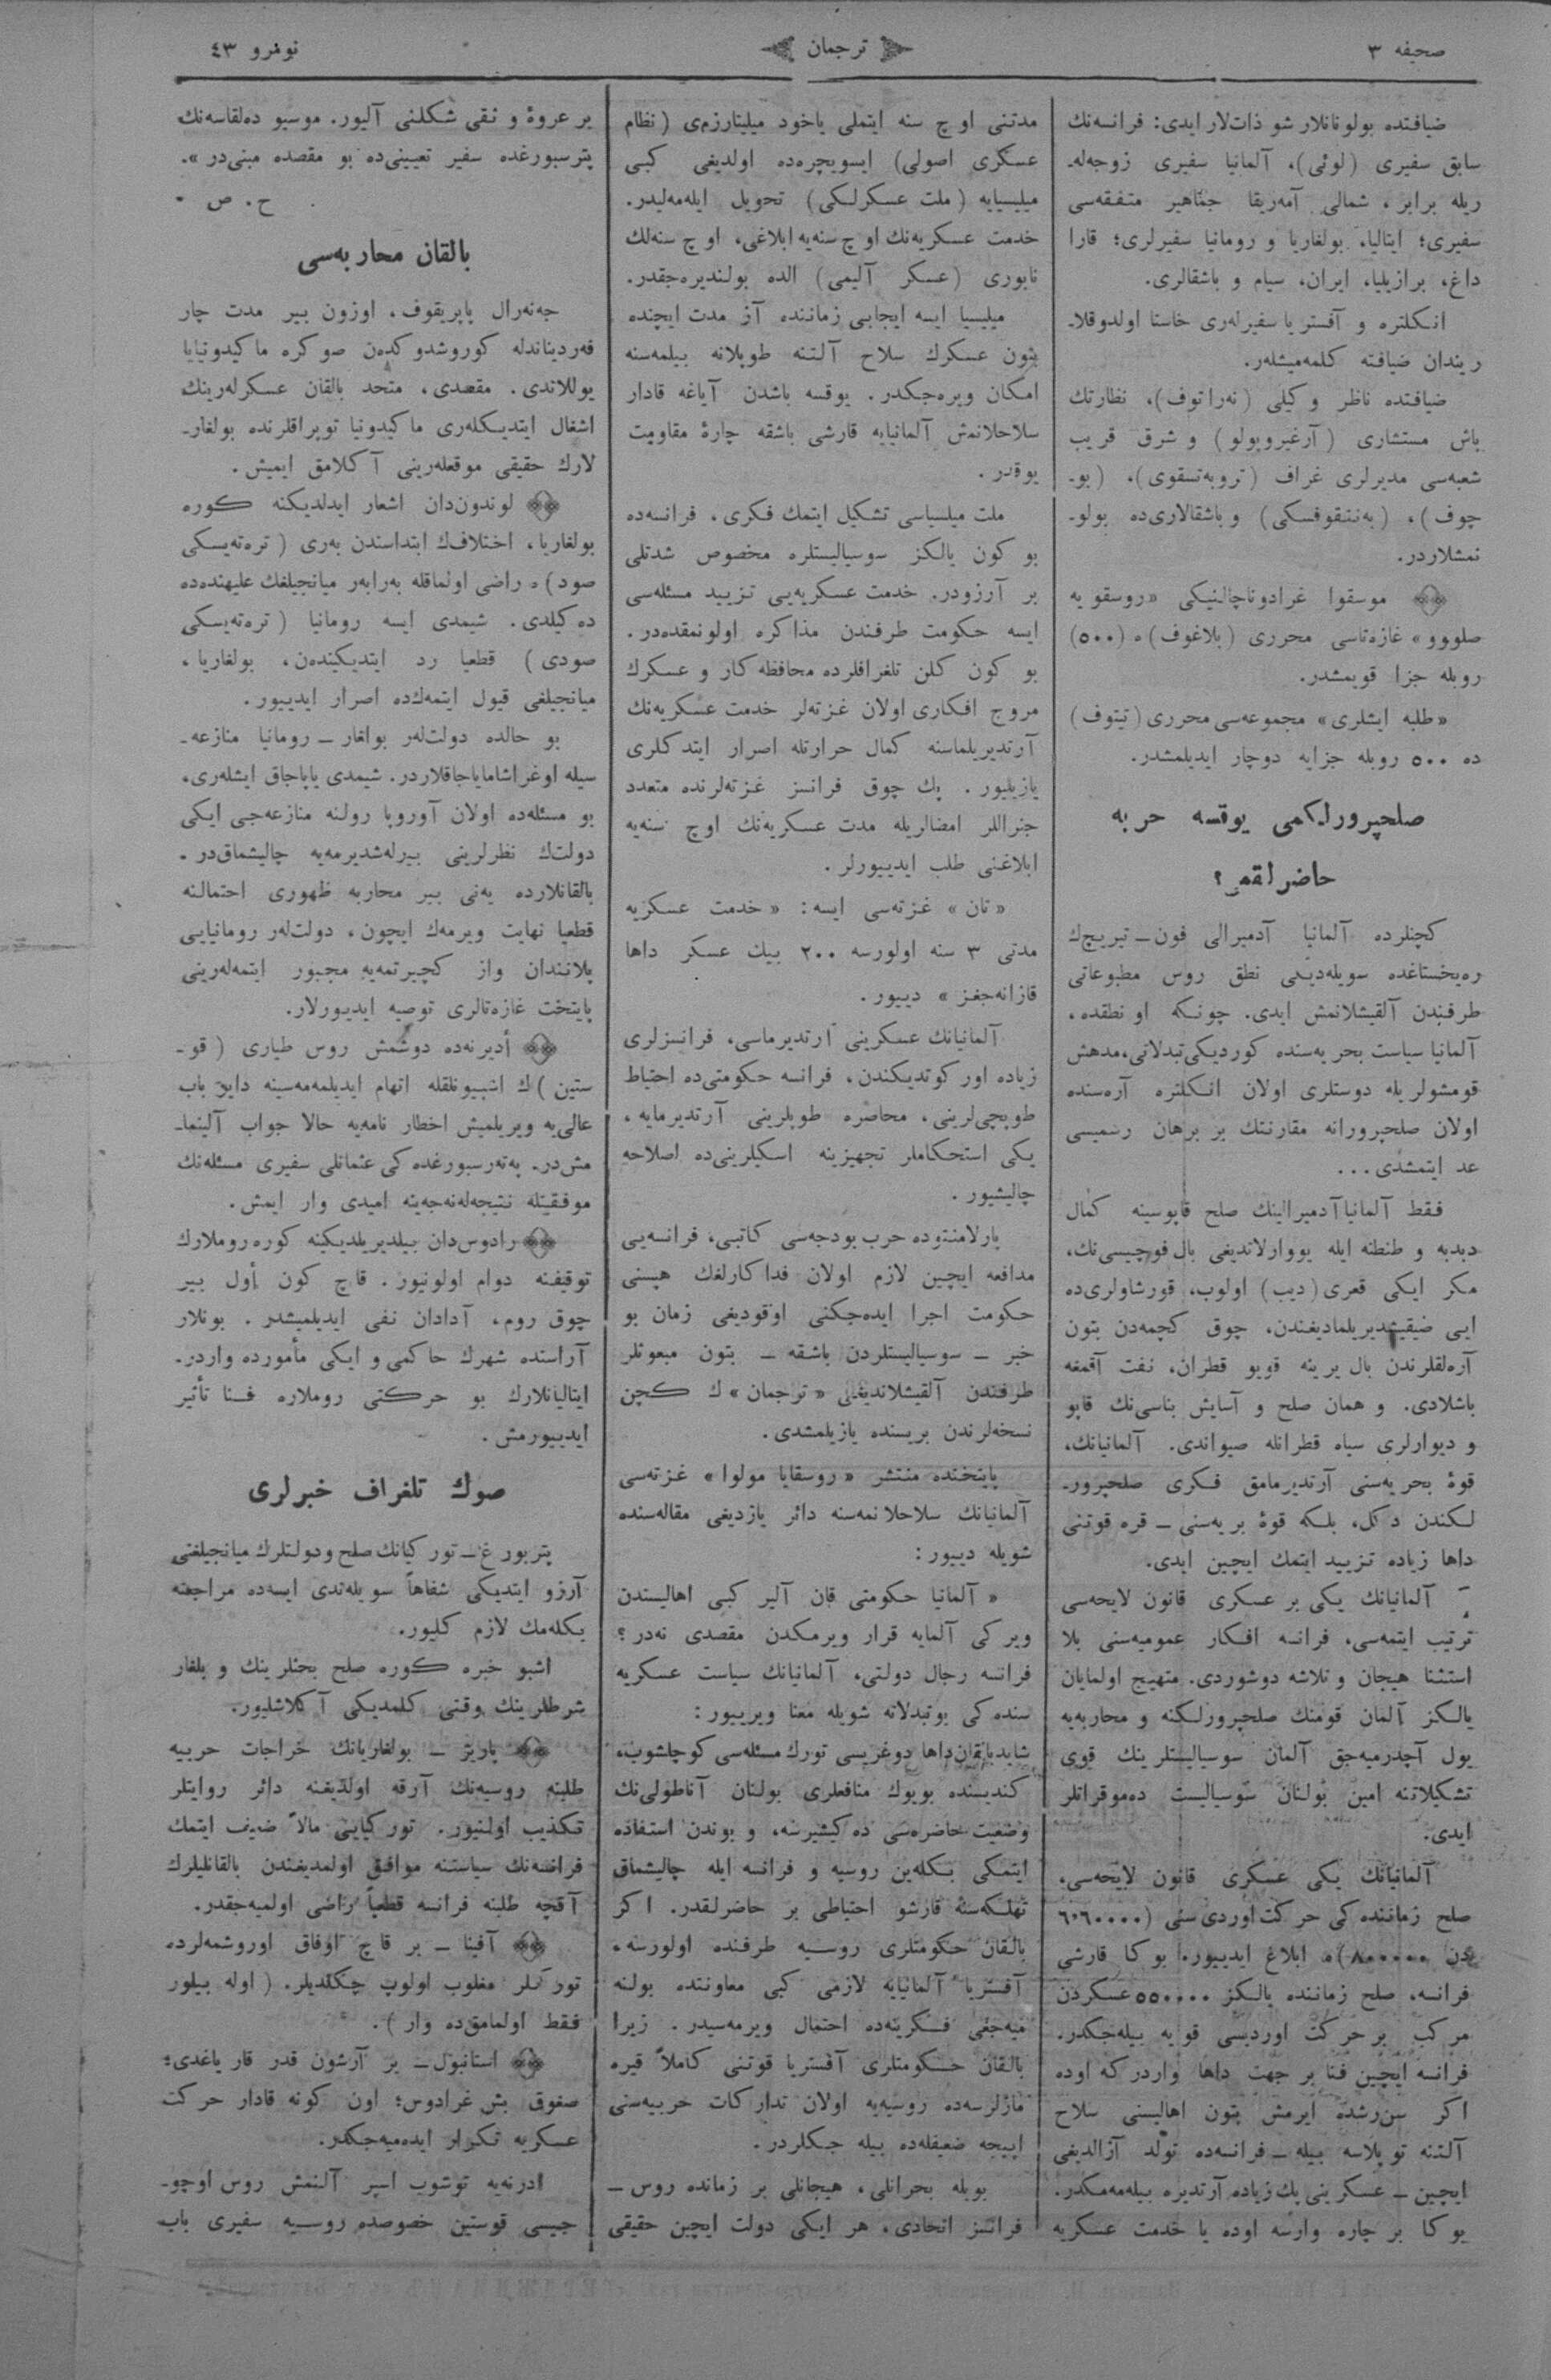 صحیفه ٣
ترجمان
نومرو ٤٣
ضیافتده بولونانلار شو ذات‌لار ایدی: فرانسه‌نك
سابق سفیری (لوئی)، آلمانیا سفیری زوجه‌له‌ـ
ریله برابر، شمالی آمه‌ریقا جمٌاهیر متفقه‌سی
سفیری؛ ایتالیا، بولغاریا و رومانیا سفیرلری؛ قارا
داغ، برازیلیا، ایران، سیام و باشقالری.
انكلتره و آفستریا سفیرله‌ری خاستا اولدوقلاـ
ریندان ضیافته كلمه‌میشله‌ر.
ضیافتده ناظر وكیلی (نه‌راتوف)، نظارتك
باش مستشاری (آرغیروپولو) و شرق قریب
شعبه‌سی مدیرلری غراف (تروبه‌تسقوی)، (بوـ
چوف)، (به‌نتقوفسكی) و باشقالاری‌ده بولوـ
نمشلاردر.
موسقوا غرادوناچالنیكی «روسقویه
صلووو» غازه‌تاسی محرری (بلاغوف)ه (٥٠٠)
روبله جزا قویمشدر.
«طلبه ایشلری» مجموعه‌سی محرری (تیتوف)
ده ٥٠٠ روبله جزایه دوچار ایدیلمشدر.
صلحپرورلكمی یوقسه حربه
حاضرلقمی؟
كچنلرده آلمانیا آدمیرالی فون ـ تیریچ‌ك
ره‌یخستاغده سویله‌دیكی نطق روس مطبوعاتی
طرفندن آلقیشلانمش ایدی. چونكه او نطقده،
آلمانیا سیاست بحریه‌سنده كوردیكی تبدلاتی، مدهش
قومشولریله دوستلری اولان انكلتره آره‌سنده
اولان صلحپرورانه مقارنتك بر برهان رسمیسی
عد ایتمشدی...
فقط آلمانیا آدمیرالینك صلح قاپوسینه كمال
دبدبه و طنطنه ایله یووارلاندیغی بال فوچیسی‌نك،
مكر ایكی قعری (دیب) اولوب، قورشاولری‌ده
ایی ضیقیشدیریلمادیغندن، چوق كچمه‌دن بتون
آره‌لقلرندن بال یرینه قویو قطران، نفت آقمغه
باشلادی. و همان صلح و آسایش بناسی‌نك قاپو
و دیوارلری سیاه قطرانله صیواندی. آلمانیانك،
قوۀ بحریه‌سنی آرتدیرمامق فكری صلحپرورـ
لكندن دكل، بلكه قوۀ بریه‌سنی ـ قره قوتنی
داها زیاده تزیید ایتمك ایچین ایدی.
آلمانیانك یكی بر عسكری قانون لایحه‌سی
ترتیب ایتمه‌سی، فرانسه افكار عمومیه‌سنی بلا
استثنا هیجان و تلاشه دوشوردی. متهیج اولمایان
یالكز آلمان قومنك صلحپرورلكنه و محاربه‌یه
یول آچدرمیه‌جق آلمان سوسیالیستلرینك قوی
تشكیلاتنه امین بولنان سوسیالیست ده‌موقراتلر
ایدی.
آلمانیانك یكی عسكری قانون لایحه‌سی،
صلح زماننده‌كی حركت اوردی‌سنی (٦٦٠٠٠٠
دن ٨٠٠٠٠٠)ه ابلاغ ایدییور. بوكا قارشی
فرانسه، صلح زماننده یالكز ٥٥٠٠٠٠ عسكردن
مركب بر حركت اوردیسی قویه بیله‌جكدر.
فرانسه ایچین فنا بر جهت داها واردركه اوده
اكر سن‌رشده ایرمش بتون اهالیسنی سلاح
آلتنه توپلاسه بیله ـ فرانسه‌ده تولّد آزالدیغی
ایچین ـ عسكرینی پك زیاده آرتدیره بیله‌مه‌مكدر.
بوكا بر چاره وارسه اوده یا خدمت عسكریه
مدتنی اوچ سنه ایتملی یاخود میلیتارزمی (نظام
عسكری اصولی) ایسویچره‌ده اولدیغی كبی
میلیسیایه (ملت عسكرلكی) تحویل ایله‌مه‌لیدر.
خدمت عسكریه‌نك اوچ سنه‌یه ابلاغی، اوچ سنه‌لك
نابوری (عسكر آلیمی) الده بولندیره‌جقدر.
میلیسیا ایسه ایجابی زماننده آز مدت ایچنده
بتون عسكرك سلاح آلتنه طوپلانه بیلمه‌سنه
امكان ویره‌جكدر. یوقسه باشدن آیاغه قادار
سلاحلانمش آلمانیایه قارشی باشقه چارۀ مقاومت
یوقدر.
ملت میلسیاسی تشكیل ایتمك فكری، فرانسه‌ده
بو كون یالكز سوسیالیستلره مخصوص شدتلی
بر آرزودر. خدمت عسكریه‌یی تزیید مسئله‌سی
ایسه حكومت طرفندن مذاكره اولونمقده‌در.
بو كون كلن تلغرافلرده محافظه‌كار و عسكرك
مروج افكاری اولان غزته‌لر خدمت عسكریه‌نك
آرتدیریلماسنه كمال حرارتله اصرار ایتدكلری
یازیلیور. پك چوق فرانسز غزته‌لرنده متعدد
جنراللر امضالریله مدت عسكریه‌نك اوچ سنه‌یه
ابلاغنی طلب ایدییورلر.
«تان» غزته‌سی ایسه: «خدمت عسكریه
مدتی ٣ سنه اولورسه ٢٠٠ بیك عسكر داها
قازانه‌جغز» دییور.
آلمانیانك عسكرینی آرتدیرماسی، فرانسزلری
زیاده اوركوتدیكندن، فرانسه حكومتی‌ده احتیاط
طوپچی‌لرینی، محاصره طوپلرینی آرتدیرمایه،
یكی استحكاملر تجهیزینه اسكیلرینی‌ده اصلاحه
چالیشیور.
پارلامنتوده حرب بودجه‌سی كاتبی، فرانسه‌یی
مدافعه ایچین لازم اولان فداكارلغك هپسنی
حكومت اجرا ایده‌جكنی اوقودیغی زمان بو
خبر ـ سوسیالیستلردن باشقه ـ بتون مبعوثلر
طرفندن آلقیشلاندیغی «ترجمان»ك كچن
نسخه‌لرندن بریسنده یازیلمشدی.
پایتختده منتشر «روسقایا مولوا» غزته‌سی
آلمانیانك سلاحلانمه‌سنه دائر یازدیغی مقاله‌سنده
شویله دییور:
«آلمانیا حكومتی قان آلیر كبی اهالیسندن
ویركی آلمایه قرار ویرمكدن مقصدی نه‌در؟
فرانسه رجال دولتی، آلمانیانك سیاست عسكریه
سنده‌كی بو تبدلاته شویله معنا ویرییور:
شاید بالقان داها دوغریسی تورك مسئله‌سی كوچلشوب،
كندیسنده بویوك منافعلری بولنان آناطولی‌نك
وضعیت حاضره‌سی ده‌كیشیرسه، و بوندن استفاده
ایتمكی بكله‌ین روسیه و فرانسه ایله چالیشماق
تهلكه‌سنه قارشو احتیاطی بر حاضرلقدر. اكر
بالقان حكومتلری روسیه طرفنده اولورسه،
آفستریا آلمانیایه لازمی كبی معاونتده بولنه
میه‌جغی فكرینه‌ده احتمال ویرمه‌سیدر. زیرا
بالقان حكومتلری آفستریا قوتنی كاملاً قیره
مازلرسه‌ده روسیه‌یه اولان تداركات حربیه‌سنی
اپیجه ضعیفله‌ده بیله جكلردر.
بویله بحرانلی، هیجانلی بر زمانده روس ـ
فرانسز اتحادی، هر ایكی دولت ایچین حقیقی
بر عروۀ و ثقی شكلنی آلیور. موسیو ده‌لقاسه‌نك
پترسبورغده سفیر تعیینی‌ده بو مقصده مبنی‌در».
ح. ص.
بالقان محاربه‌سی
جه‌نه‌رال پاپریقوف، اوزون بیر مدت چار
فه‌ردیناندله كوروشدوكدەن صوكره ماكیدونیایا
یوللاندی. مقصدی، متحد بالقان عسكرله‌رینك
اشغال ایتدیكله‌ری ماكیدونیا توپراقلرنده بولغارـ
لارك حقیقی موقعله‌رینی آكلامق ایمیش.
لوندون‌دان اشعار ایدلدیكنه كوره
بولغاریا، اختلافك ابتداسندن به‌ری (تره‌ته‌یسكی
صود)ه راضی اولماقله به‌رابه‌ر میانجیلغك علیهنده‌ده
ده‌كیلدی. شیمدی ایسه رومانیا (تره‌ته‌یسكی
صودی) قطعیا رد ایتدیكیندەن، بولغاریا،
میانجیلغی قبول ایتمه‌ك‌ده اصرار ایدییور.
بو حالده دولت‌له‌ر بولغار ـ رومانیا منازعه‌ـ
سیله اوغراشامایاجاقلاردر. شیمدی یاپاجاق ایشله‌ری،
بو مسئله‌ده اولان آوروپا رولنه منازعه‌جی ایكی
دولت‌ك نظرلرینی بیرله‌شدیرمه‌یه چالیشماق‌در.
بالقانلارده یه‌نی بیر محاربه ظهوری احتمالنه
قطعیا نهایت ویرمه‌ك ایچون، دولت‌له‌ر رومانیایی
پلانندان واز كچیرتمه‌یه مجبور ایتمه‌له‌رینی
پایتخت غازه‌تالری توصیه ایدیورلار.
أدیرنه‌ده دوشمش روس طیاری (قوـ
ستین)ك اشپیونلقله اتهام ایدیلمه‌مه‌سینه دایق باب
عالی‌یه ویریلمیش اخطار نامه‌یه حالا جواب آلینماـ
مش‌در. په‌ته‌رسبورغده‌كی عثمانلی سفیری مسئله‌نك
موفقیتله نتیجه‌له‌نه‌جه‌یته امیدی وار ایمش.
رادوس‌دان بیلدیریلدیكینه كوره روملارك
توقیفنه دوام اولونیور. قاچ كون أول بیر
چوق روم، آدادان نفی ایدیلمیشدر. بونلار
آراسنده شهرك حاكمی و ایكی مأمورده واردر.
ایتالیانلارك بو حركتی روملاره فنا تأثیر
ایدییورمش.
صوك تلغراف خبرلری
پتربورغ ـ توركیانك صلح و دولتلرك میانجیلغنی
آرزو ایتدیكی شفاهاً سویله‌ندی ایسه‌ده مراجعته
بكله‌مك لازم كلیور.
اشبو خبره كوره صلح بحثلرینك و بلغار
شرطلرینك وقتی كلمدیكی آكلاشلیور.
پاریژ ـ بولغاریانك خراجات حربیه
طلبنه روسیه‌نك آرقه اولدیغنه دائر روایتلر
تكذیب اولنیور. توركیایی مالاً ضعیف ایتمك
فرانسه‌نك سیاستنه موافق اولمدیغندن بالقانلیلرك
آقچه طلبنه فرانسه قطعیاً راضی اولمیه‌جقدر.
آفینا ـ بر قاچ اوفاق اوروشمه‌لرده
توركلر مغلوب اولوب چكلدیلر. (اوله بیلور
فقط اولمامق‌ده وار).
استانبول ـ بر آرشون قدر قار یاغدی؛
صغوق بش غرادوس؛ اون كونه قادار حركت
عسكریه تكرار ایده‌میه‌جكدر.
ادرنه‌یه توشوب اسیر آلنمش روس اوچوـ
جیسی قوستین خصوصنده روسیه سفیری باب